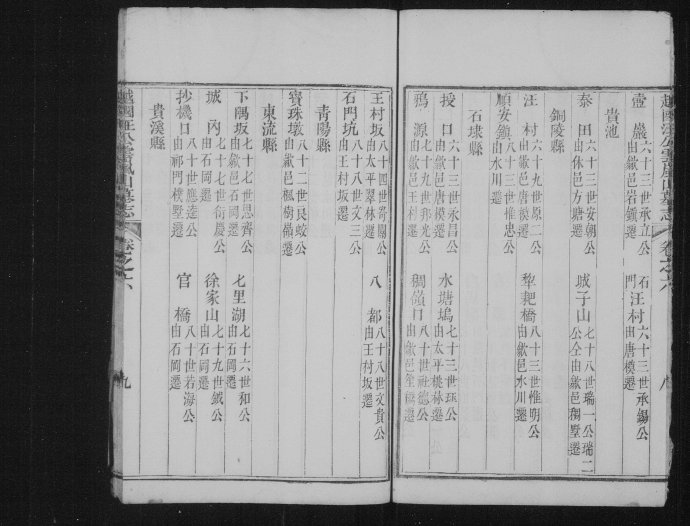 壺巖 六十三世承立公 由歙邑岩鎮遷 石門汪村 六十三世承錫公 由唐模遷
貴池
泰田 六十三世安朝公 由休邑方塘遷 城子山 七十八世瑞一公瑞二公仝由歙邑稠墅遷
銅陵縣
汪村 六十九世原二公 由歙邑唐模遷 犂耙橋 八十三世惟明公 由歙邑水川遷
順安鎮 八十三世惟忠公 由水川遷
石埭縣
授口 六十三世永昌公 由歙邑唐模遷 水塘塢 七十三世珏公 由太平桃林遷
鴉源 七十九世邦光公 由歙邑王村遷 稠嶺口 八十世社德公 由歙邑
越國汪公雲嵐山墓志 卷之六 八
王村坂 八十四世寄關公 由太平翠林遷 八都 八十八世文貴公 由王村坂遷
石門坑 八十八世文三公 由王村坂遷
青陽縣
寶珠墩 八十二世艮蛟公 由歙邑楓樹嶺遷
東流縣
下隅坂 七十七世思齊公 由歙邑石岡遷 七里湖 七十六世和公 由石岡遷
城內 七十七世衍慶公 由石岡遷 徐家山 七十九世鉞公 由石岡遷
抄機口 八十世應達公 由祁門樸墅遷 官橋 八十世若海公 由石岡遷
貴溪縣
越國汪公雲嵐山墓志 卷之六 九